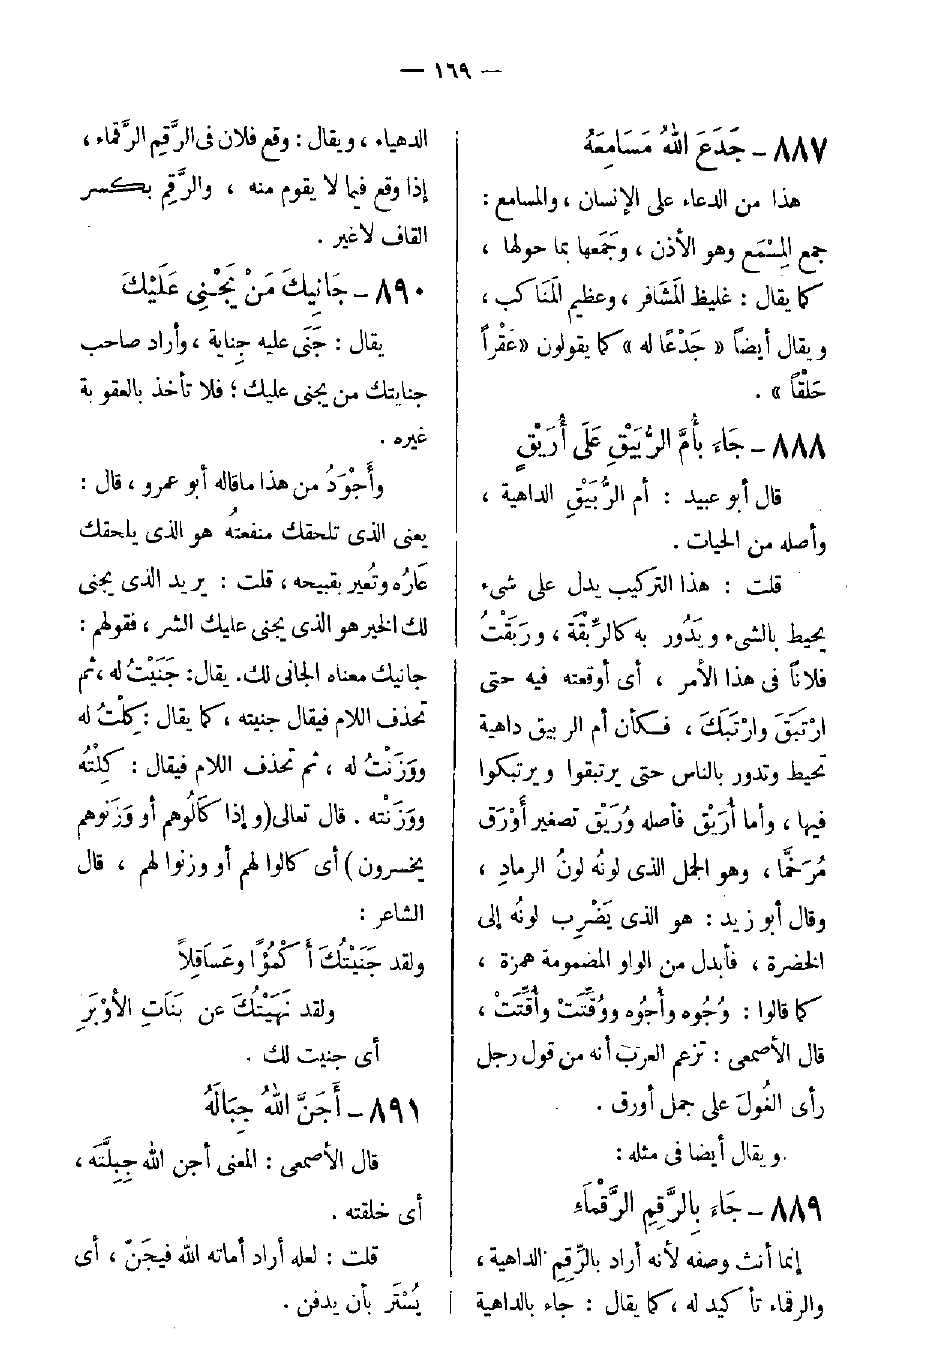 — ١٦٩ —
٨٨٧ – جَدَعَ اللهُ مَسَامِعَهُ
هذا من الدعاء على الإنسان ، والمسامع :
جمع المِسْمَع وهو الأذن ، وَجَمَعها بما حولها ،
كما يقال : غليظ المَشَافر ، وعظيم المَنَاكب ،
ويقال أيضاً « جَدْعًا له » كما يقولون « عَقْراً
حَلْقاً » .
٨٨٨ – جَاءَ بِأُمِّ الرُّبَيْقِ عَلَى أُرَيْقٍ
قال أبو عبيد : أم الرُّبَيْقِ الداهية ،
وأصله من الحيات .
قلت : هذا التركيب يدل على شىء
يحيط بالشىء ويَدُور به كالرِّبْقَة ، ورَبَقْتُ
فلاناً فى هذا الأمر ، أى أوقعته فيه حتى
ارْتَبَقَ وارْتَبَكَ ، فكأن أم الربيق داهية
تحيط وتدور بالناس حتى يرتبقوا ويرتبكوا
فيها ، وأما أُرَيْق فأصله وُرَيْق تصغير أَوْرَق
مُرَخَّمًا ، وهو الجمل الذى لونُه لونُ الرمادِ ،
وقال أبو زيد : هو الذى يَضْرِب لونُه إلى
الخضرة ، فأبدل من الواو المضمومة همزة ،
كما قالوا : وُجُوه وأُجُوه ووُقِّتَتْ وأُقِّتَتْ ،
قال الأصمعى : تزعم العرب أنه من قول رجل
رأى الغُولَ على جمل أورق .
ويقال أيضا فى مثله :
٨٨٩ – جَاءَ بِالرَّقِمِ الرَّقْمَاءِ
إنما أنث وصفه لأنه أراد بالرَّقِمِ الداهية ،
والرقماء تأكيد له ، كما يقال : جاء بالداهية
الدهياء ، ويقال : وقع فلان فى الرَّقِم الرَّقْماء ،
إذا وقع فيما لا يقوم منه ، والرَّقِم بكسر
القاف لاغير .
٨٩٠ – جَانِيكَ مَنْ يَجْنِى عَلَيْكَ
يقال : جَنَى عليه جِناية ، وأراد صاحب
جنايتك من يجنى عليك ؛ فلا تأخذ بالعقوبة
غيره .
وأَجْوَدُ من هذا ماقاله أبو عمرو ، قال :
يعنى الذى تلحقك منفعتُه هو الذى يلحقك
عَارُه وتُعير بقبيحه ، قلت : يريد الذى يجنى
لك الخير هو الذى يجنى عليك الشر ، فقولهم :
جانيك معناه الجانى لك. يقال: جَنَيْتُ له ، ثم
تحذف اللام فيقال جنيته ، كما يقال : كِلْتُ له
ووَزَنْتُ له ، ثم تحذف اللام فيقال : كِلْتُه
ووزَنْته . قال تعالى (وإذا كَالُوهم أو وَزَنوهم
يخسرون) أى كالوا لهم أو وزنوا لهم ، قال
الشاعر :
ولقد جَنَيْتُكَ أَكْمُؤًا وعَسَاقِلاً
ولقد نَهَيْتُكَ عن بَنَاتِ الأَوْبَرِ
أى جنيت لك .
٨٩١ – أَجَنَّ اللهُ جِبَالَهُ
قال الأصمعى : المعنى أجن الله جِبِلَّتَه ،
أى خلقته .
قلت : لعله أراد أماته الله فيجَنّ ، أى
يُسْتَر بأن يدفن .